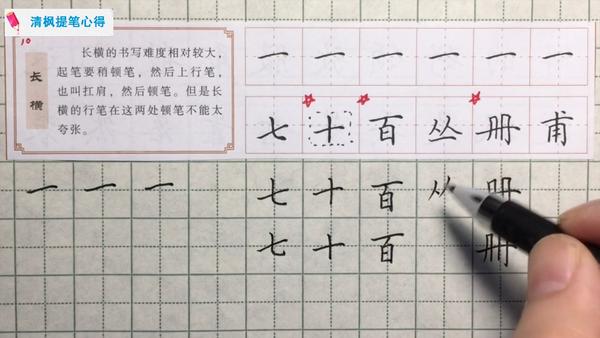 清枫提笔心得
10
长横
长横的书写难度相对较大，
起笔要稍顿笔，然后上行笔，
也叫扛肩，然后顿笔。但是长
横的行笔在这两处顿笔不能太
夸张。
一 一 一 一 一 一
七 十 百 丛 册 甫
一 一 一 七 十 百 从 册
七 十 百 册